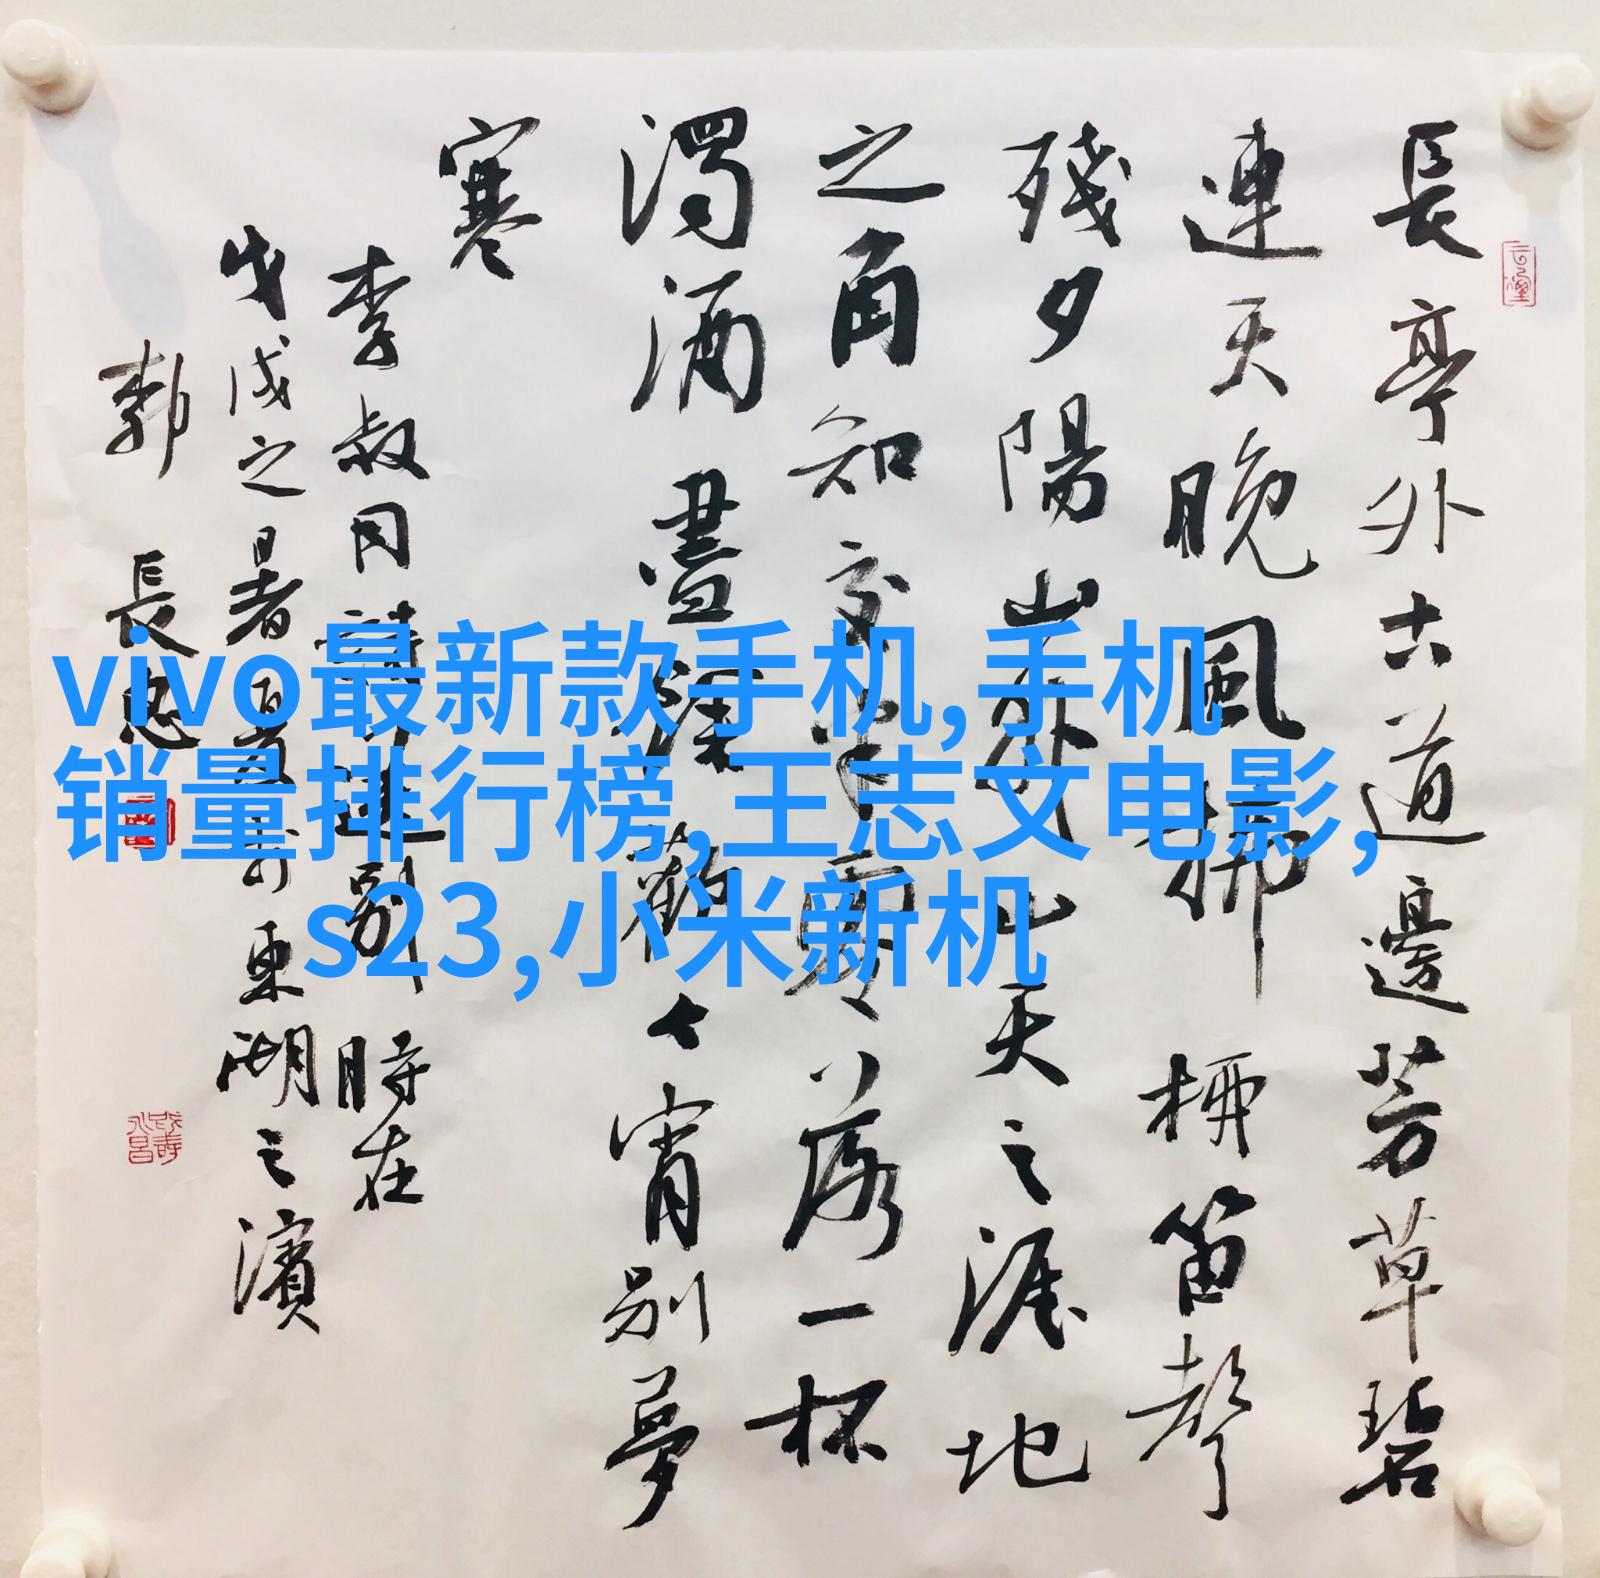 長亭外古道邊芳草碧
連天晚風拂柳笛聲
殘夕陽山外山天之涯地
之角知交半零落一杯
濁酒盡歡今宵別夢
寒
李叔同詩送別時在
戊戌之暑夏於東湖之濱
郭長忠
vivo最新款手机,手机
销量排行榜,王志文电影,
s23,小米新机